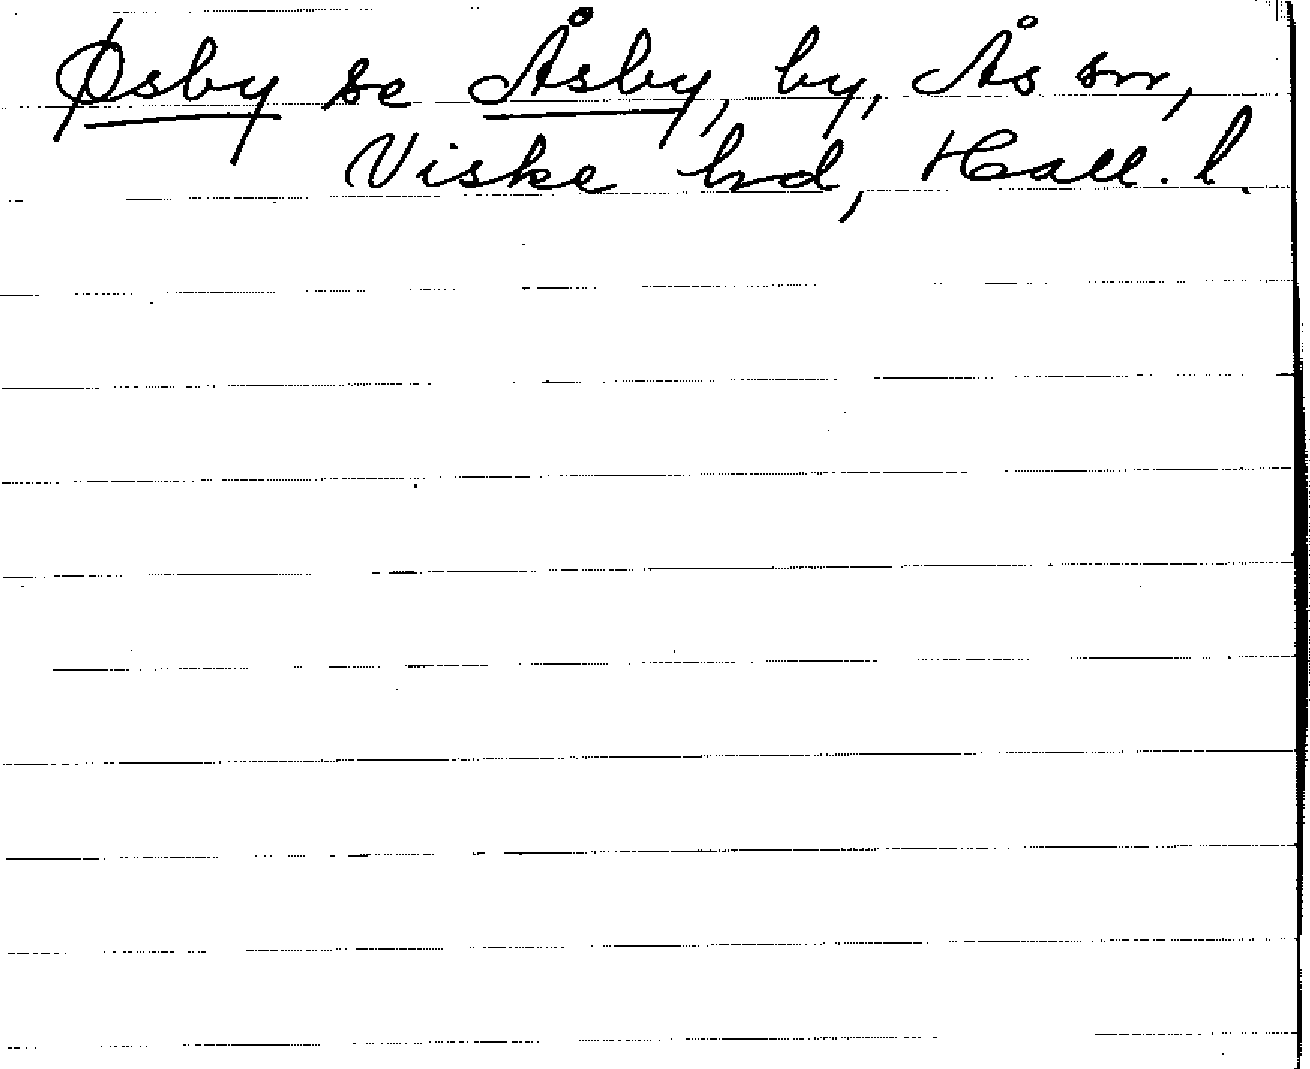 Øsby se Åsby, by, Ås sn,
Viske hrd, Hall. l.